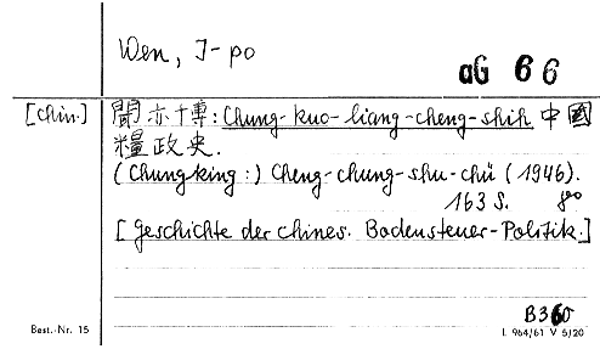 Wen, I-po
aG 66
[Chin.] 聞亦博: Chung-kuo-liang-cheng-shih 中國
糧政史.
(Chungking:) Cheng-chung-shu-chü (1946).
163 S. 8°
[Geschichte der chines. Bodensteuer-Politik.]
B360
Best.-Nr. 15
L 964/61 V 5/20